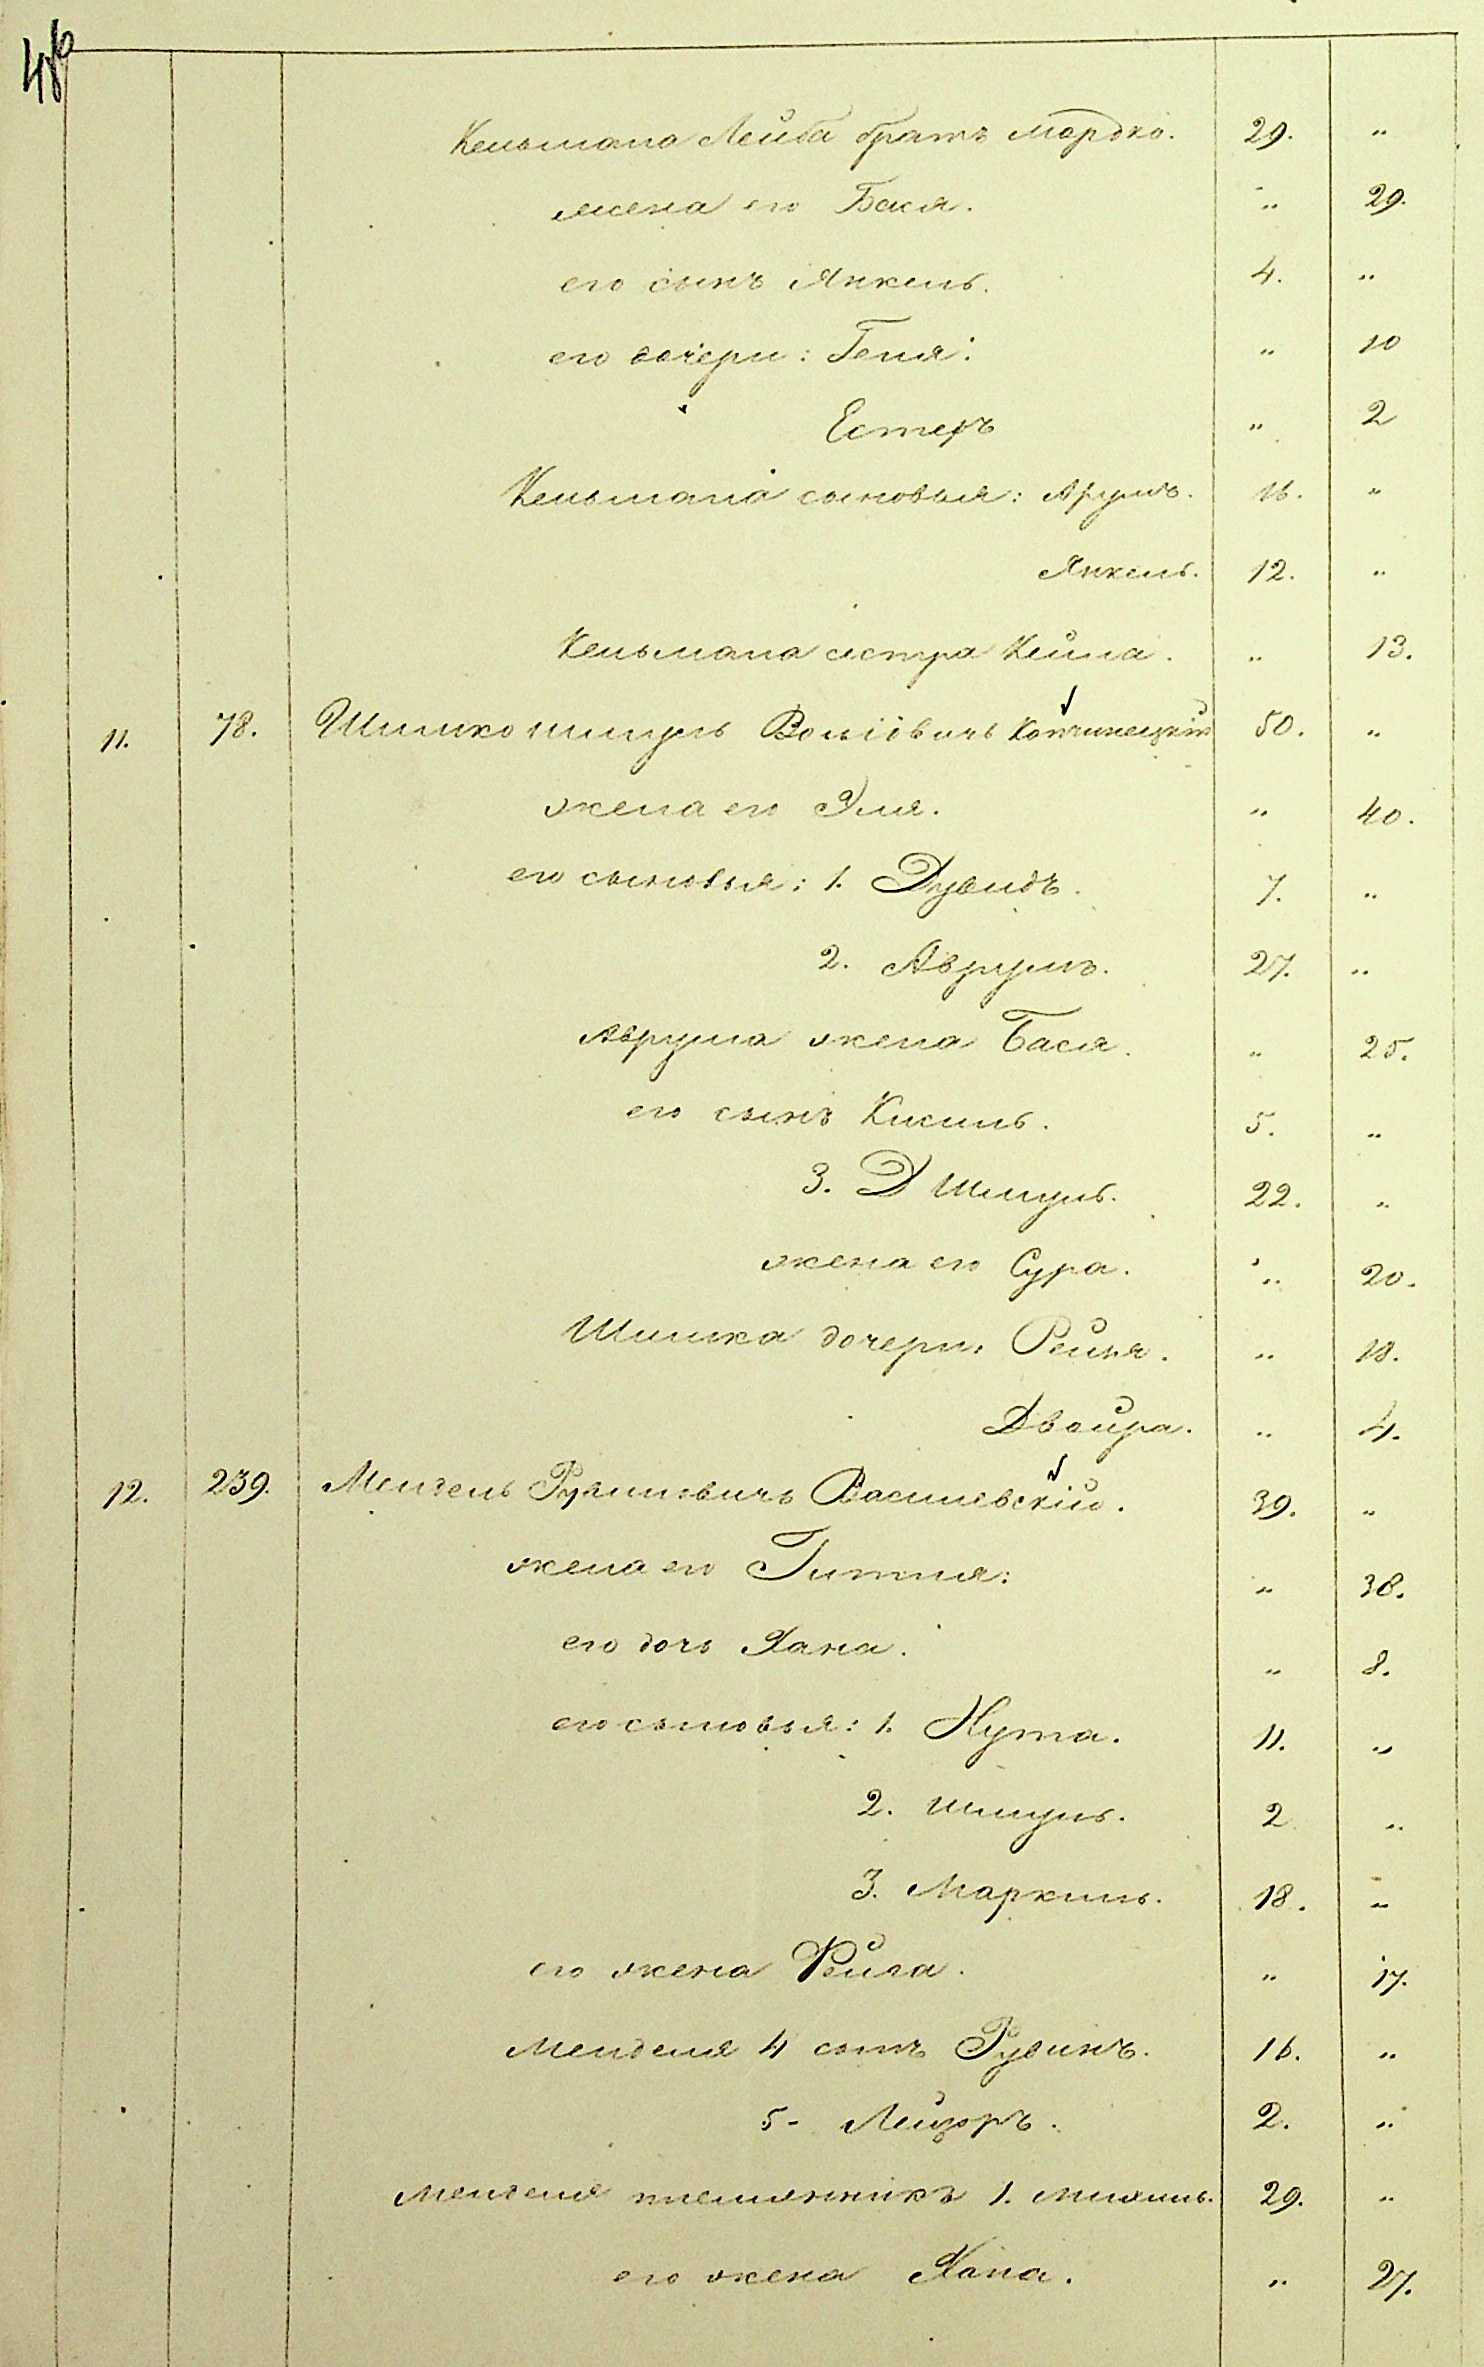 46
Кельмана Лейба братъ Мордко. 29. "
жена его Бася. " 29.
его сынъ Янкель. 4. "
его дочери: Геня. " 10
Естеръ " 2
Кельмана сыновья: Аврумъ. 16. "
Янкель. 12. "
Кельмана сестра Кейла. " 13.
11. 78. Шимко Шмуль Вольковичъ 50. "
жена его Эля. " 40.
его сыновья: 1. Дувидъ. 7. "
2. Аврумъ. 27. "
Аврума жена Бася. " 25.
его сынъ Кисиль. 5. "
3. Д Шмуль. 22. "
жена его Сура. " 20.
Шимка дочери: Рейзя. " 18.
Двойра. " 4.
12. 239. Мендель Рувиновичъ Василевскій. 39. "
жена его Гитля: " 38.
его дочь Хана. " 8.
его сыновья: 1. Нута. 11. "
2. Шмуль. 2 "
3. Маркиль. 18. "
его жена Фейга. " 17.
Менделя 4 сынъ Рувинъ. 16. "
5- Лейзоръ. 2. "
Менделя племянникъ 1. 29. "
его жена Хана. " 27.